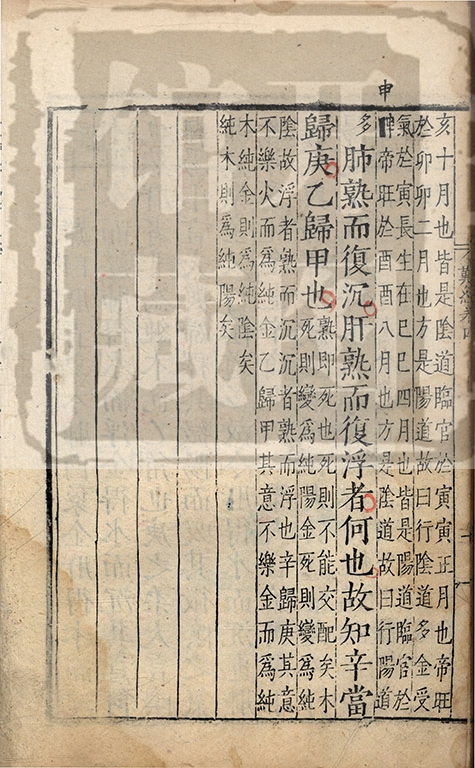 申
亥十月也皆是陰道臨官於寅寅正月也帝旺
於卯卯二月也方是陽道故曰行陰道多金受
氣於寅長生在巳巳四月也皆是陽道臨官於
申帝旺於酉酉八月也方是陰道故曰行陽道
多肺熟而復沉肝熟而復浮者何也故知辛當
歸庚乙歸甲也
熟即死也死則不能交配矣木
死則變爲純陽金死則變爲純
陰故浮者熟而沉沉者熟而浮也辛歸庚其意
不樂火而爲純金乙歸甲其意不樂金而爲純
木純金則爲純陰矣
純木則爲純陽矣